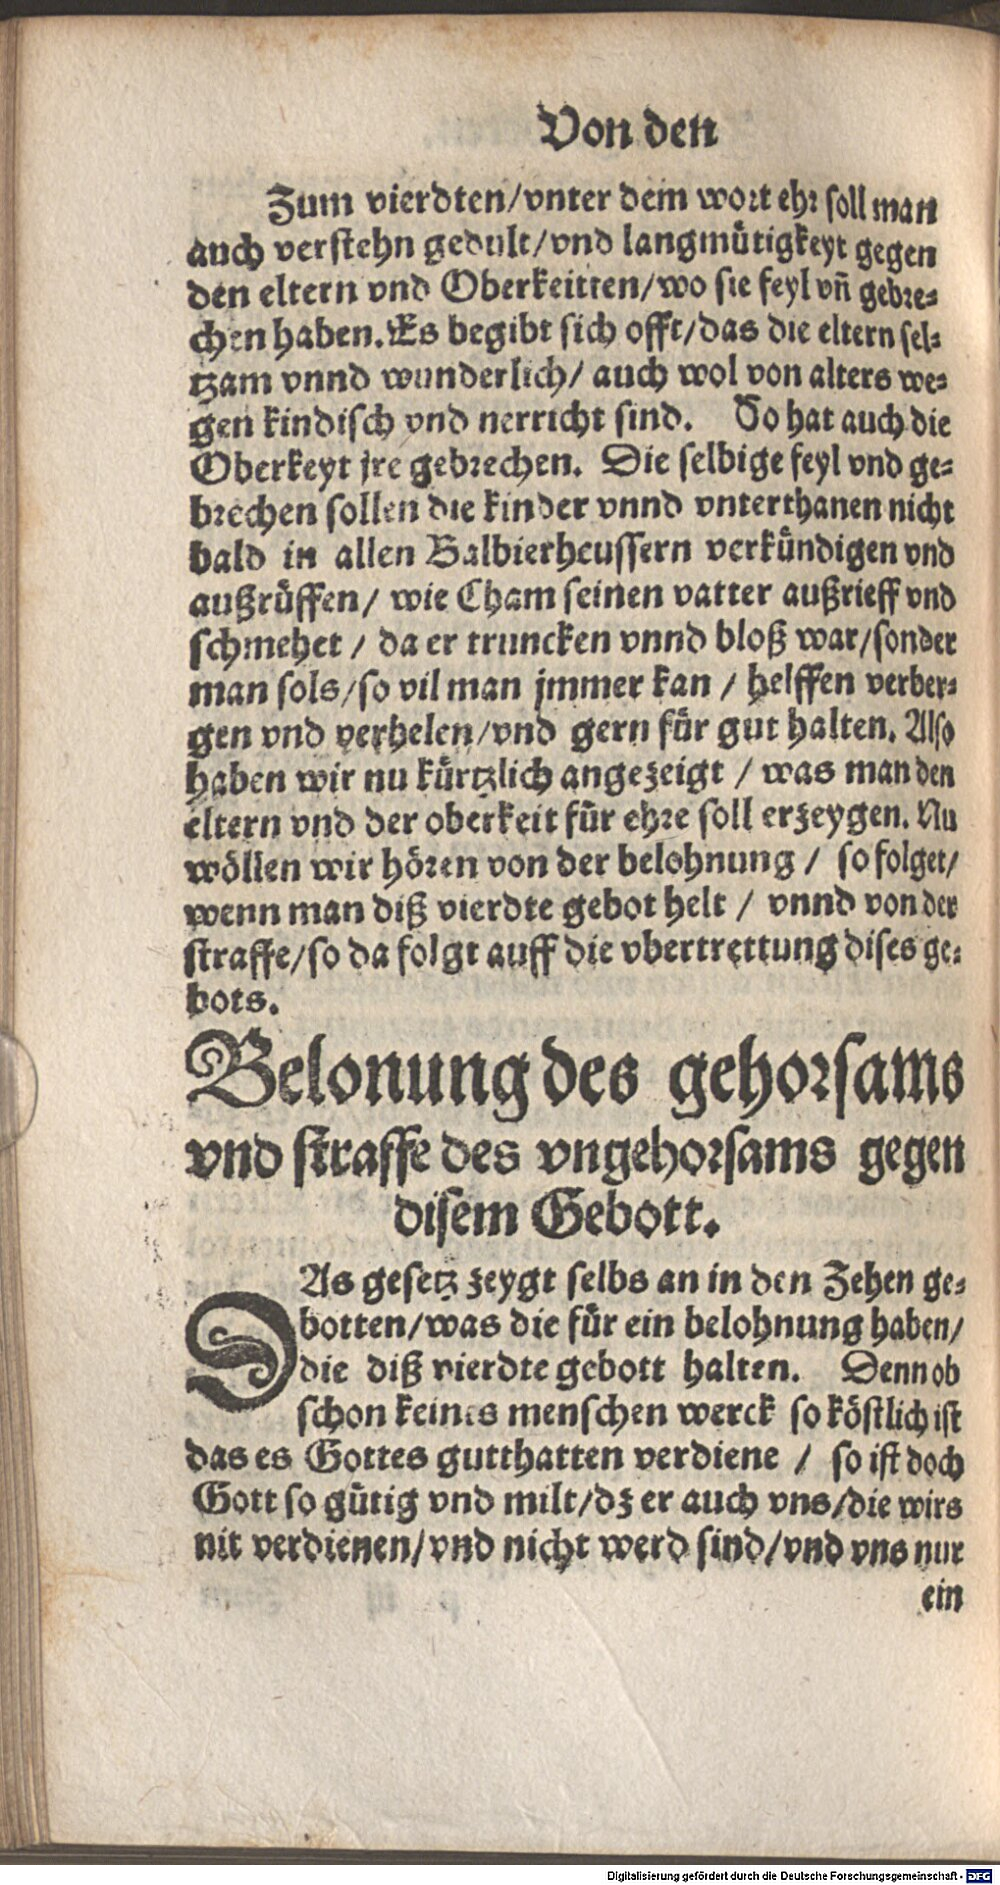 Von den
Zum vierdten/vnter dem wort ehr soll man
auch verstehn gedult/vnd langmütigkeyt gegen
den eltern vnd Oberkeitten/wo sie feyl vñ gebre-
chen haben. Es begibt sich offt/das die eltern sel-
tzam vnnd wunderlich/ auch wol von alters we-
gen kindisch vnd nerricht sind. So hat auch die
Oberkeyt jre gebrechen. Die selbige feyl vnd ge-
brechen sollen die kinder vnnd vnterthanen nicht
bald in allen Balbierheussern verkündigen vnd
außrüffen/ wie Cham seinen vatter außrieff vnd
schmehet / da er truncken vnnd bloß war/sonder
man sols/so vil man jmmer kan / helffen verber-
gen vnd verhelen/vnd gern für gut halten. Also
haben wir nu kürtzlich angezeigt / was man den
eltern vnd der oberkeit für ehre soll erzeygen. Nu
wöllen wir hören von der belohnung / so folget/
wenn man diß vierdte gebot helt / vnnd von der
straffe/so da folgt auff die vbertrettung dises ge-
bots.
Belonung des gehorsams
vnd straffe des vngehorsams gegen
disem Gebott.
DAs gesetz zeygt selbs an in den Zehen ge-
botten/was die für ein belohnung haben/
die diß vierdte gebott halten. Denn ob
schon keines menschen werck so köstlich ist
das es Gottes gutthatten verdiene / so ist doch
Gott so gütig vnd milt/dz er auch vns/die wirs
nit verdienen/vnd nicht werd sind/vnd vns nur
ein
Digitalisierung gefördert durch die Deutsche Forschungsgemeinschaft - DFG